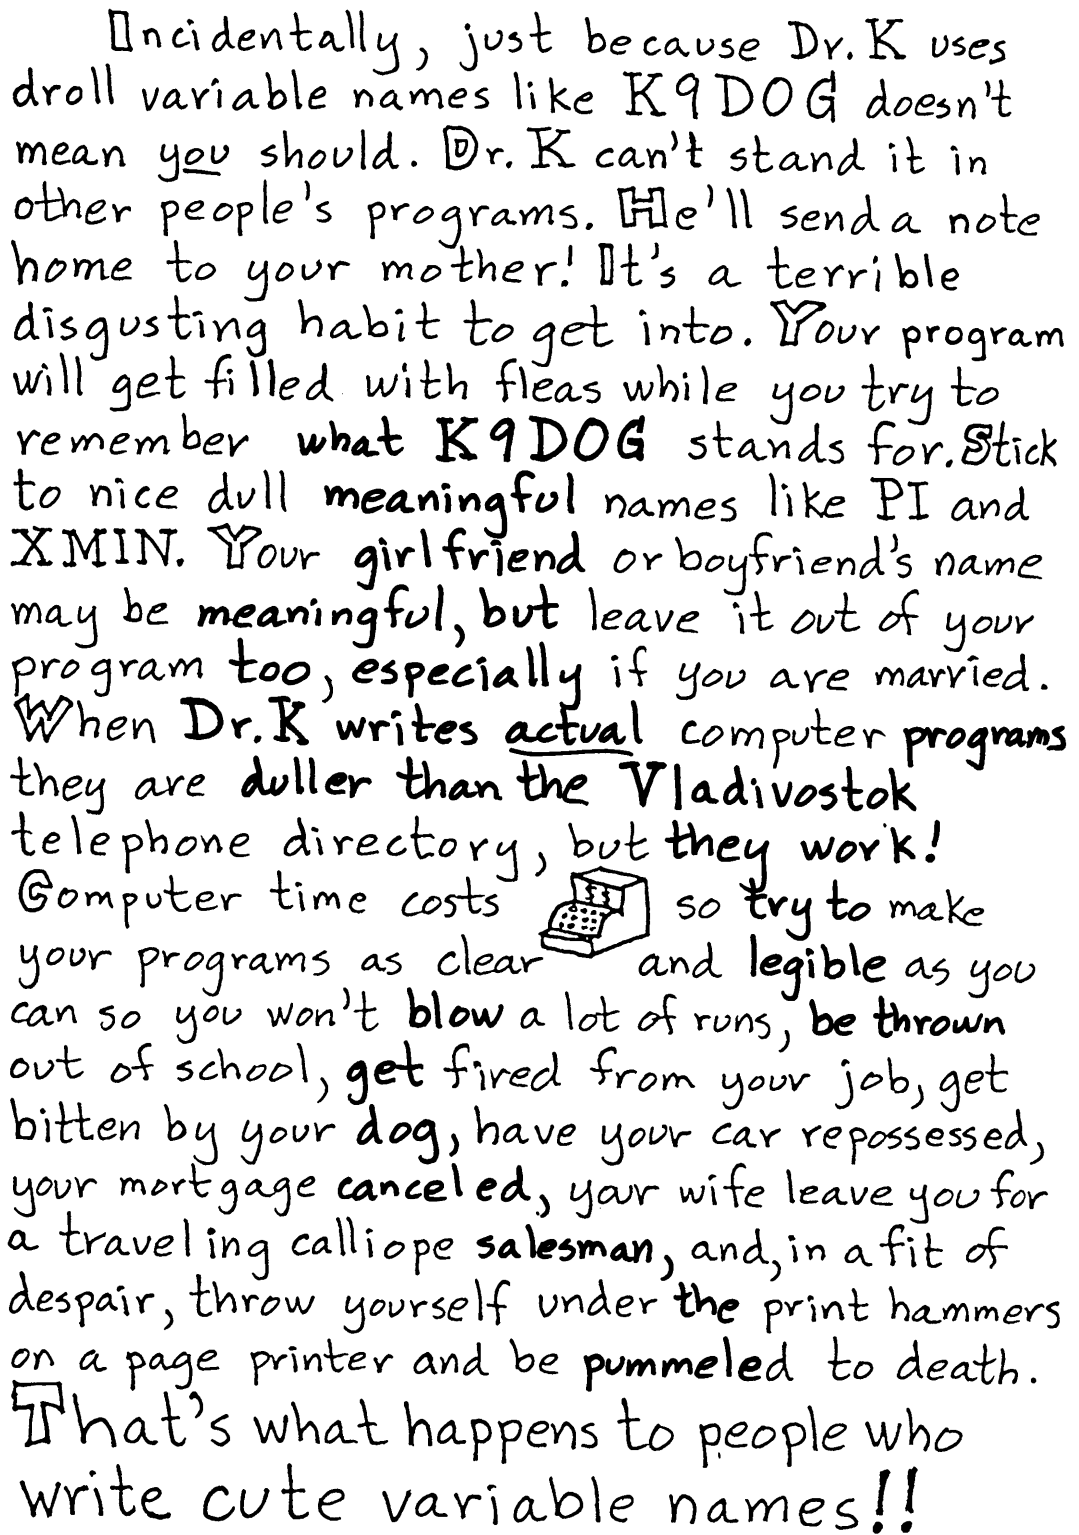 Incidentally, just because Dr. K uses
droll variable names like K9DOG doesn't
mean you should. Dr. K can't stand it in
other people's programs. He'll send a note
home to your mother! It's a terrible
disgusting habit to get into. Your program
will get filled with fleas while you try to
remember what K9DOG stands for. Stick
to nice dull meaningful names like PI and
XMIN. Your girlfriend or boyfriend's name
may be meaningful, but leave it out of your
program too, especially if you are married.
When Dr. K writes actual computer programs
they are duller than the Vladivostok
telephone directory, but they work!
Computer time costs $$ so try to make
your programs as clear and legible as you
can so you won't blow a lot of runs, be thrown
out of school, get fired from your job, get
bitten by your dog, have your car repossessed,
your mortgage canceled, your wife leave you for
a traveling calliope salesman, and, in a fit of
despair, throw yourself under the print hammers
on a page printer and be pummeled to death.
That's what happens to people who
write cute variable names!!